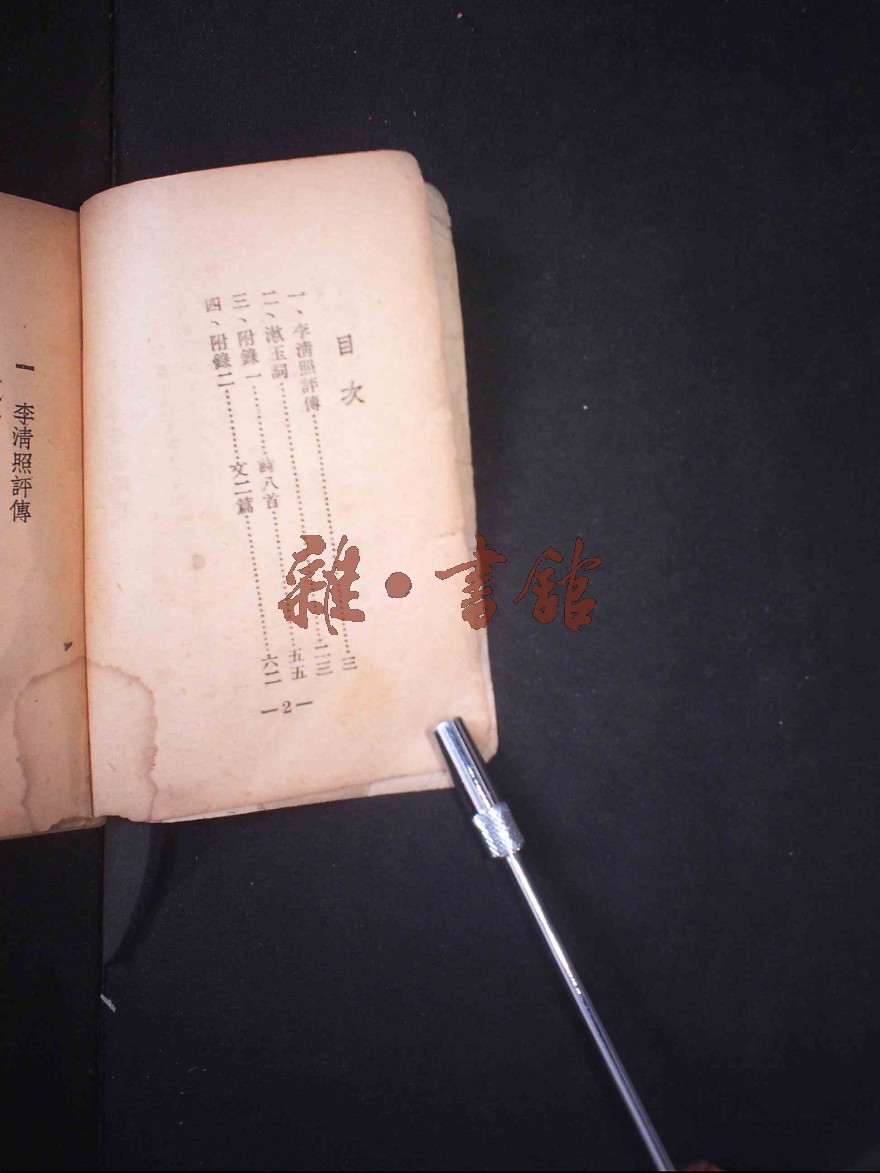 目次
一、李清照評傳……三
二、漱玉詞……二三
三、附錄一……詩八首……五五
四、附錄二……文二篇……六二
—2—
一 李清照評傳
雜·書館